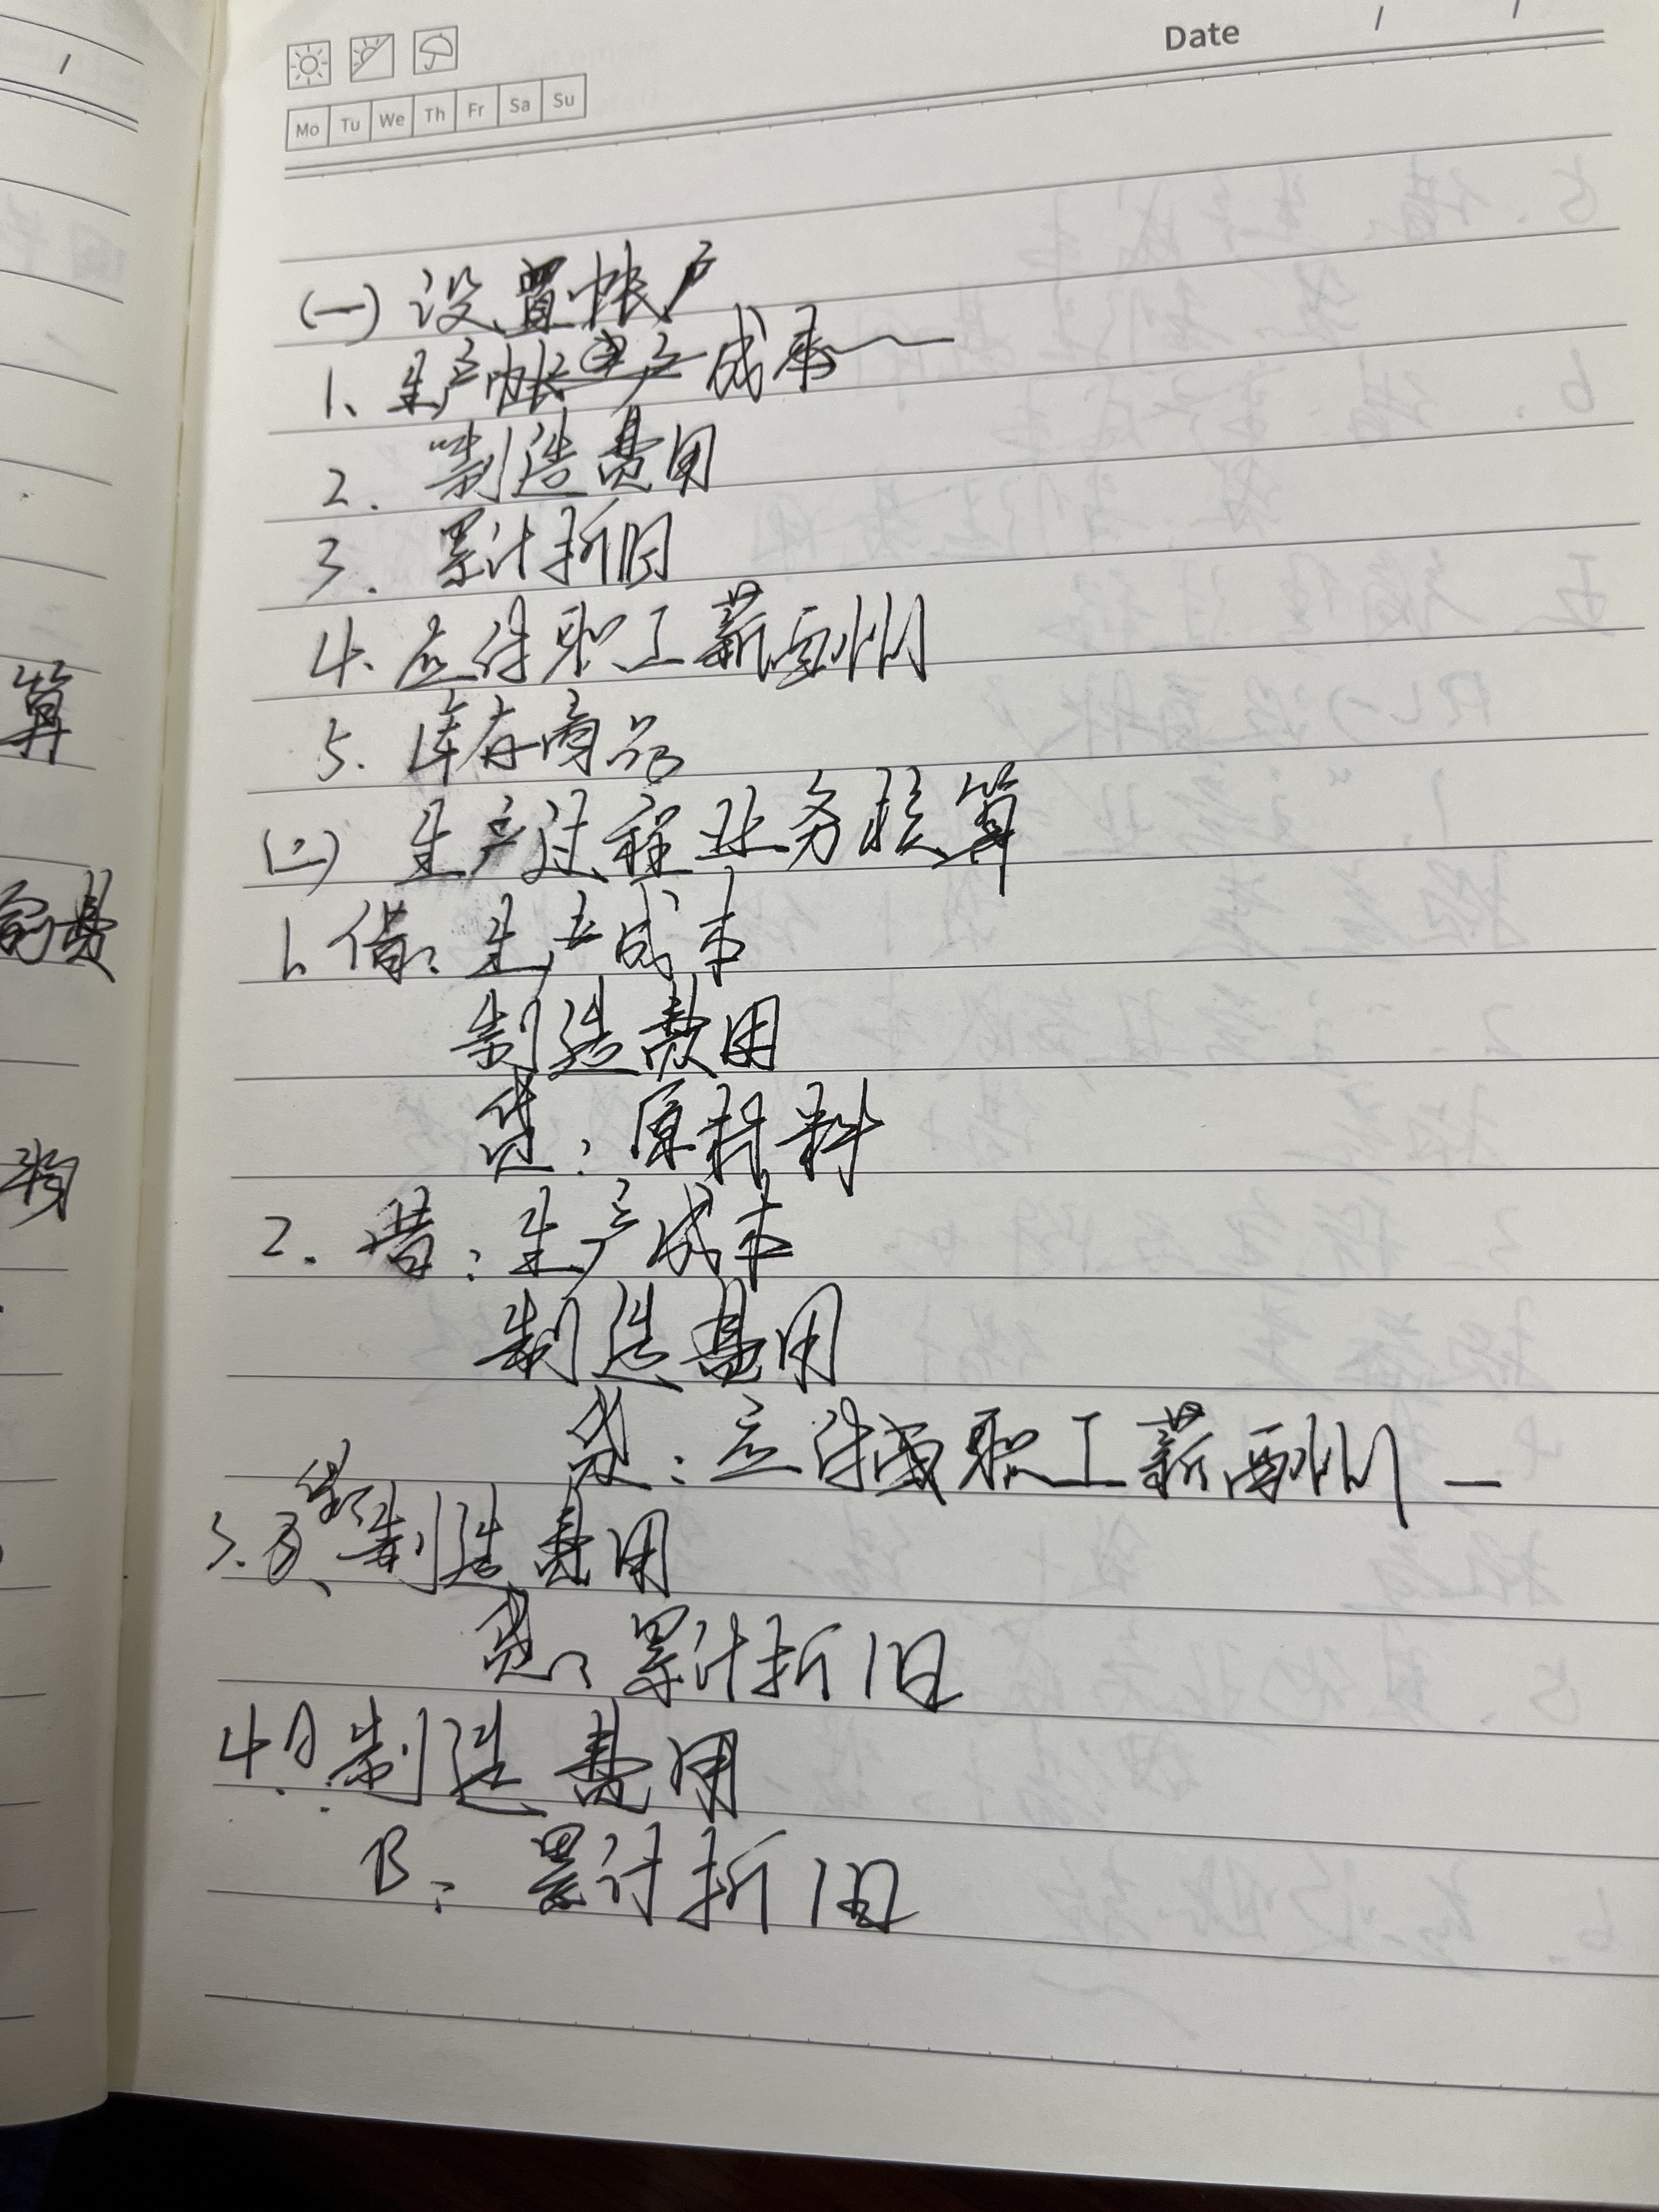 Date / /
Mo Tu We Th Fr Sa Su
(一) 设置帐户
1、生产成本
2. 制造费用
3. 累计折旧
4. 应付职工薪酬
5. 库存商品
(二) 生产过程业务核算
1. 借: 生产成本
制造费用
贷: 原材料
2. 借: 生产成本
制造费用
贷: 应付职工薪酬
3. 借: 制造费用
贷: 累计折旧
4. A: 制造费用
B: 累计折旧
算
的费